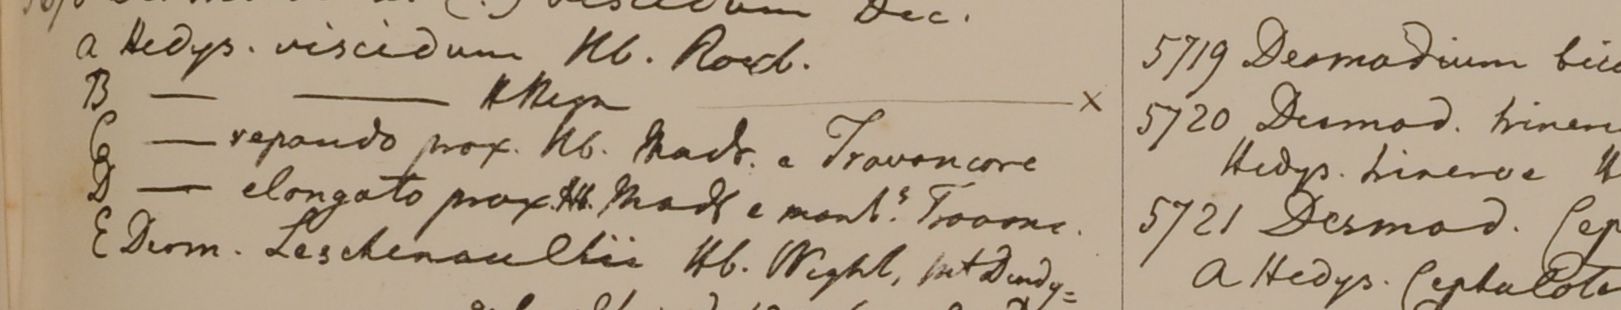 viscidum Dec.
a Hedys. viscidum Hb. Roxb.
B — — x
C — repando prox. Hb. Madr. e Travancore
D — elongato prox. Hb. Madr e mont.s Travanc.
E Desm. Leschenaultii Hb. Wight, mt Dindy=
5719 Desmodium
5720 Desmod. trinerv
Hedys. trinerve H
5721 Desmod. Cep
a Hedys. Cephalote